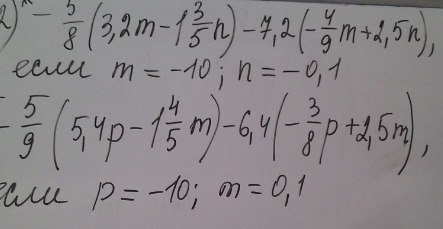 2) - 5/8 (3,2m - 1 3/5 n) - 7,2 (- 4/9 m + 2,5n),
если m = -10; n = -0,1
- 5/9 (5,4p - 1 4/5 m) - 6,4 (- 3/8 p + 2,5m),
если p = -10; m = 0,1